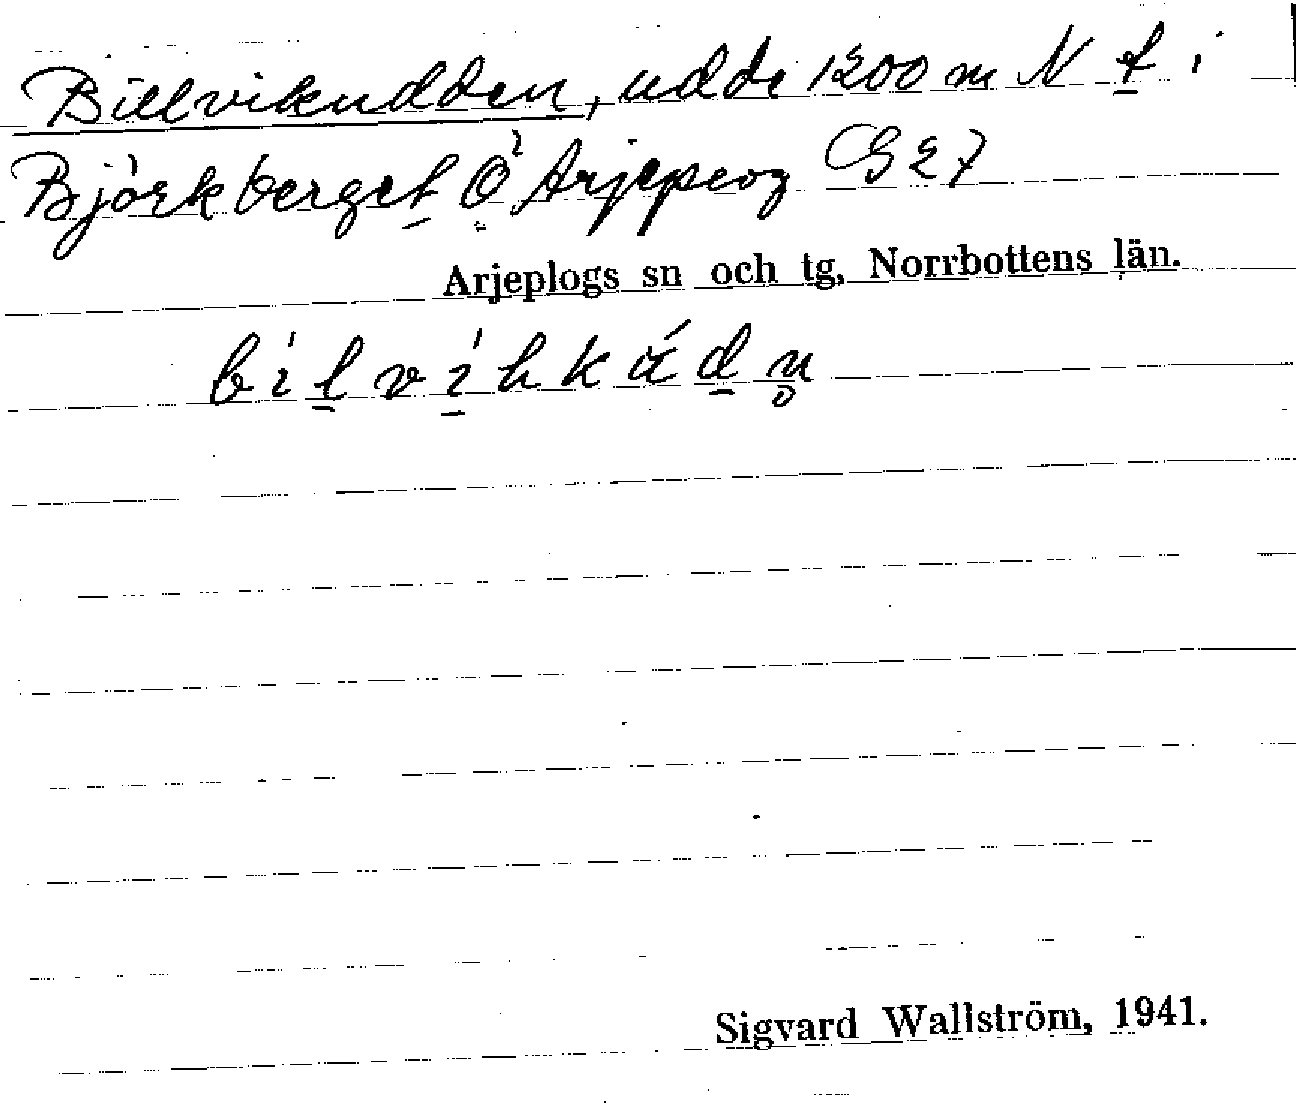 Billvikudden, udde 1200 m N t i
Björkberget Ö Arjepeog G27
Arjeplogs sn och tg, Norrbottens län.
bi̍l̠vi̠̍hkúd̠n̥
Sigvard Wallström, 1941.